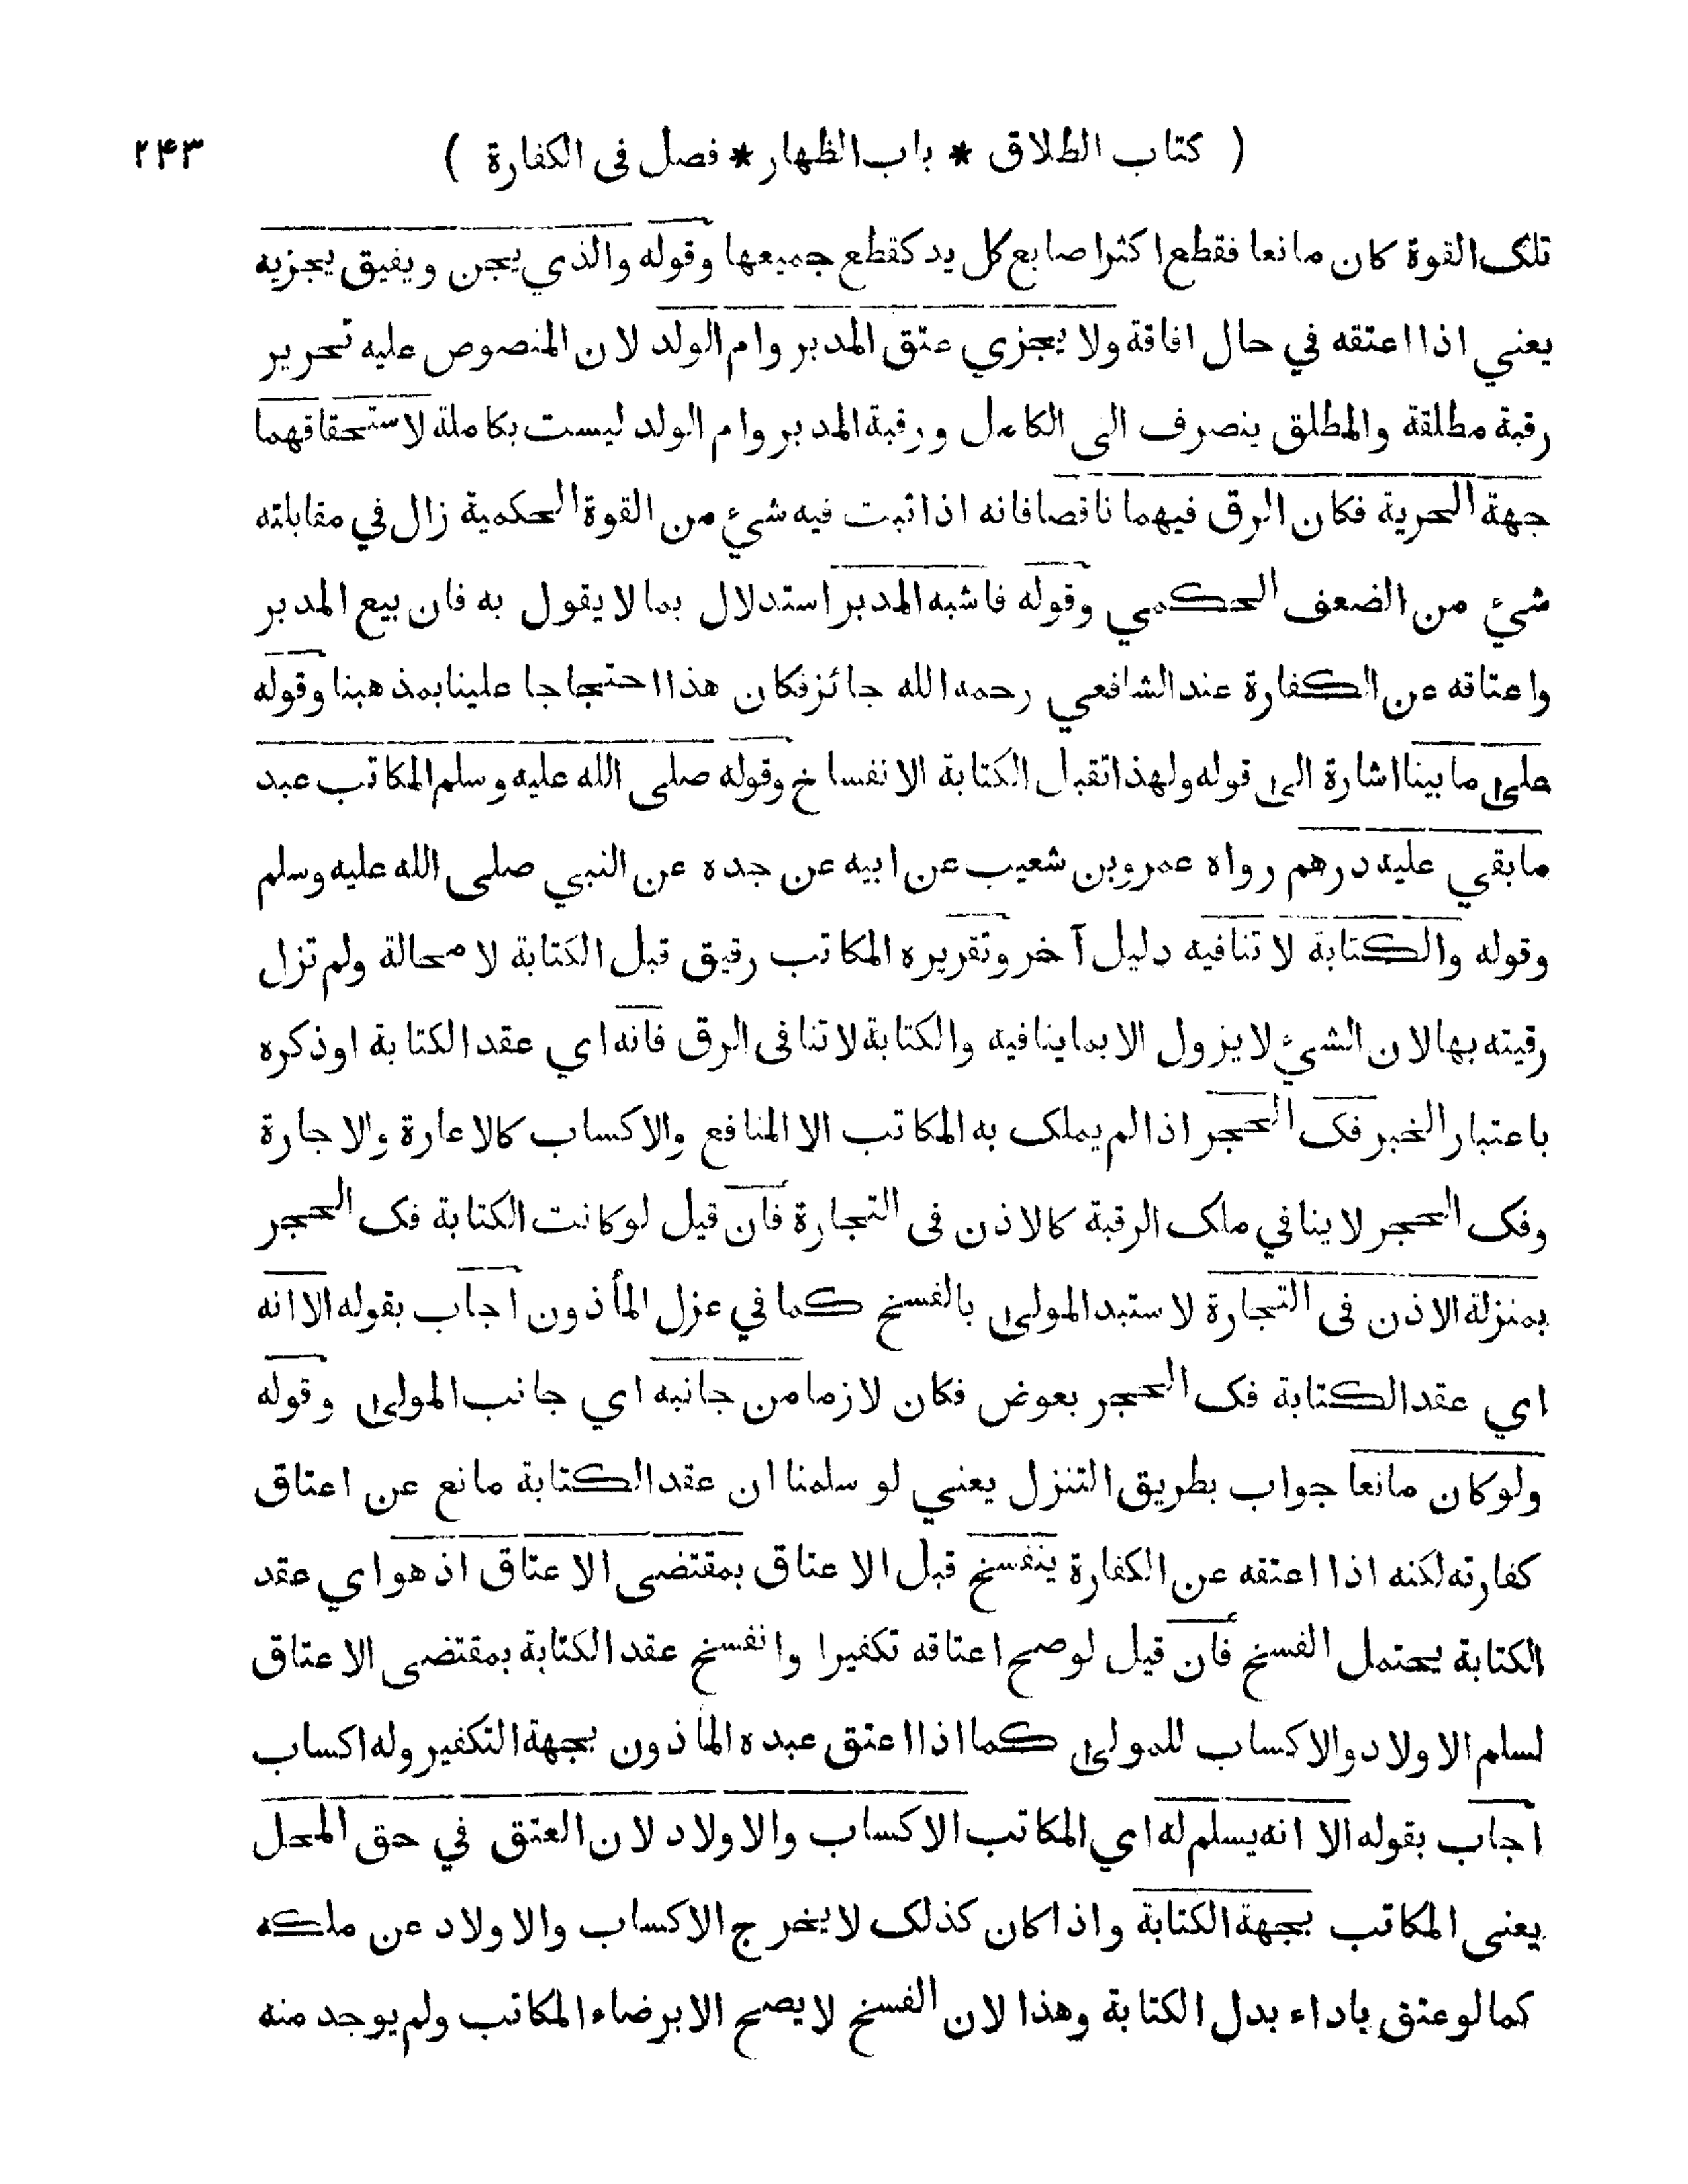 ( كتاب الطلاق * باب الظهار * فصل فى الكفارة ) ٢۴٣
تلك القوة كان مانعا فقطع اكثر اصابع كل يد كقطع جميعها وقوله والذي يجن ويفيق يجزيه
يعني اذا اعتقه في حال افاقة ولا يجزي عتق المدبر وام الولد لان المنصوص عليه تحرير
رقبة مطلقة والمطلق ينصرف الى الكامل ورقبة المدبر وام الولد ليست بكاملة لاستحقاقهما
جهة الحرية فكان الرق فيهما ناقصا فانه اذا ثبت فيه شيء من القوة الحكمية زال في مقابلته
شيء من الضعف الحكمي وقوله فاشبه المدبر استدلال بما لا يقول به فان بيع المدبر
واعتاقه عن الكفارة عند الشافعي رحمه الله جائز فكان هذا احتجاجا علينا بمذهبنا وقوله
على ما بينا اشارة الى قوله ولهذا تقبل الكتابة الانفساخ وقوله صلى الله عليه وسلم المكاتب عبد
ما بقي عليه درهم رواه عمرو بن شعيب عن ابيه عن جده عن النبي صلى الله عليه وسلم
وقوله والكتابة لا تنافيه دليل آخر وتقريره المكاتب رقيق قبل الكتابة لا محالة ولم تزل
رقيته بها لان الشيء لا يزول الا بما ينافيه والكتابة لا تنافى الرق فانه اي عقد الكتابة او ذكره
باعتبار الخبر فك الحجر اذ لم يملك به المكاتب الا المنافع والاكساب كالاعارة والاجارة
وفك الحجر لا ينافي ملك الرقبة كالاذن فى التجارة فان قيل لو كانت الكتابة فك الحجر
بمنزلة الاذن فى التجارة لاستبد المولى بالفسخ كما في عزل المأذون اجاب بقوله الا انه
اي عقد الكتابة فك الحجر بعوض فكان لازما من جانبه اي جانب المولى وقوله
ولو كان مانعا جواب بطريق التنزل يعني لو سلمنا ان عقد الكتابة مانع عن اعتاق
كفارته لكنه اذا اعتقه عن الكفارة ينفسخ قبل الاعتاق بمقتضى الاعتاق اذ هو اي عقد
الكتابة يحتمل الفسخ فان قيل لو صح اعتاقه تكفيرا وانفسخ عقد الكتابة بمقتضى الاعتاق
لسلم الاولاد والاكساب للمولى كما اذا اعتق عبده الماذون بجهة التكفير وله اكساب
اجاب بقوله الا انه يسلم له اي المكاتب الاكساب والاولاد لان العتق في حق المحل
يعنى المكاتب بجهة الكتابة واذا كان كذلك لا يخرج الاكساب والاولاد عن ملكه
كما لو عتق باداء بدل الكتابة وهذا لان الفسخ لا يصح الا برضاء المكاتب ولم يوجد منه